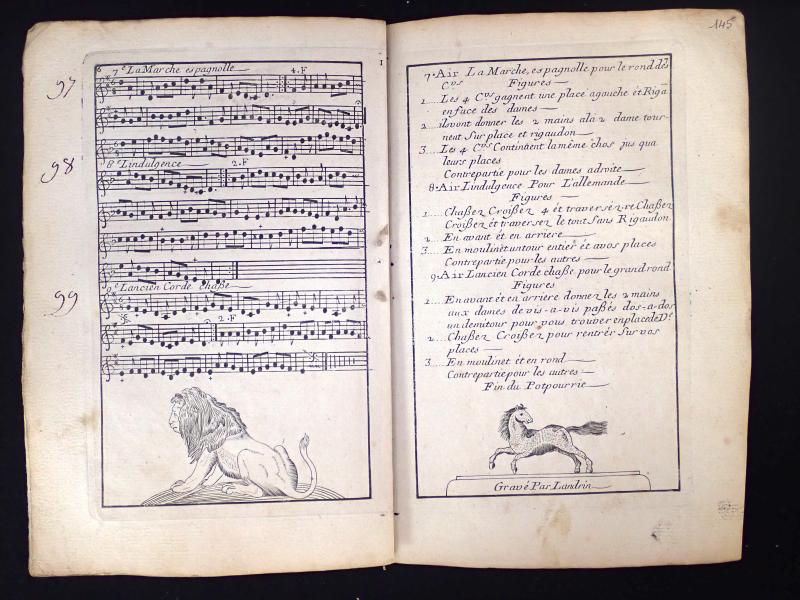 6
7.e La Marche espagnolle
4.F
97
8.e Lindulgence
2.F
98
9.e Lancien Corde chaße
99
2.F
1
145
7.Air La Marche, espagnolle pour le rond dès
C.vs Figures
1....Les 4 C.vs gagnent une place agouche ét Riga
enface des dames
2...ilsvont donner les 2 mains ala 2 dame tour-
nent Sur place et rigaudon
3....Les 4 C.vs Continüent la même chos jus qua
leurs places
Contrepartie pour les dames adroite
8.Air Lindulgence Pour L'allemande
Figures
1....Chaßez Croißez 4 ét traversez.re Chaßez
Croißez ét traversez le tout Sans Rigaudon
2....En avant ét en arriere
3....En moulinet untour entier ét avos places
Contrepartie pour les autres
9.Air Lancien Corde chaße pour le grand rond
Figures
1....En avant ét en arriere donnez les 2 mains
aux dames de vis-a-vis paßés dos-a-dos
un demitour pour vous trouver enplacede D.e
2....Chaßez Croißez pour rentrér Sur vos
places
3....En moulinet ét en rond
Contrepartie pour les autres
Fin du Potpourrie
Gravé Par Landrin